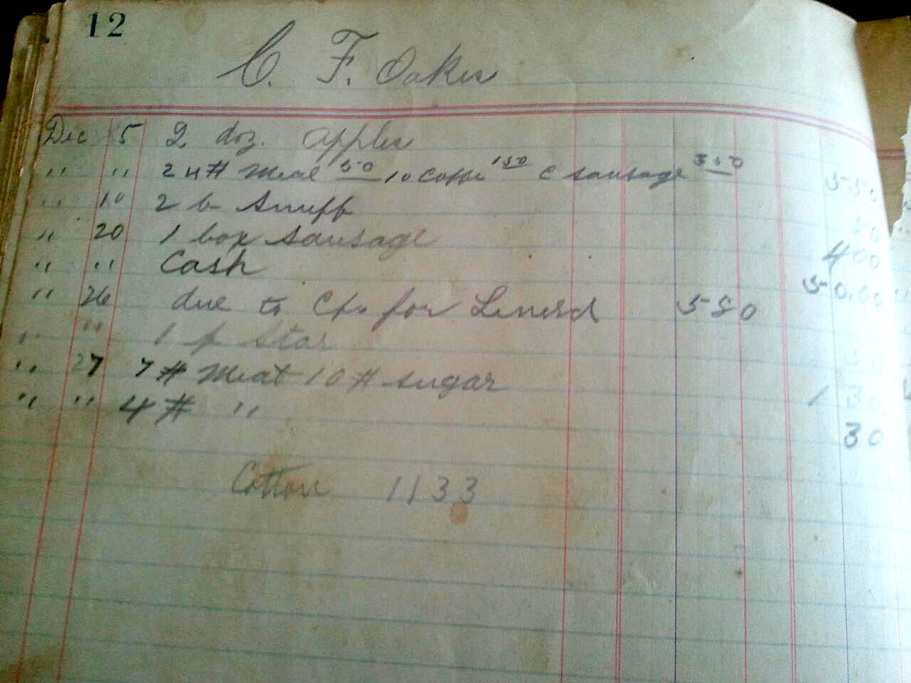 12
C. F. Oakes
Dec 5 2 doz. apples
" " 24# Meal 50 10 Coffe 150 C sausage 350 550
" 10 2 b Snuff
" 20 1 box sausage 400
" " Cash 50.00
" 26 due to Cr. for 550
" " 1 p Star
" 27 7# Meat 10# sugar 1 30
" " 4# " 30
Cotton 1133